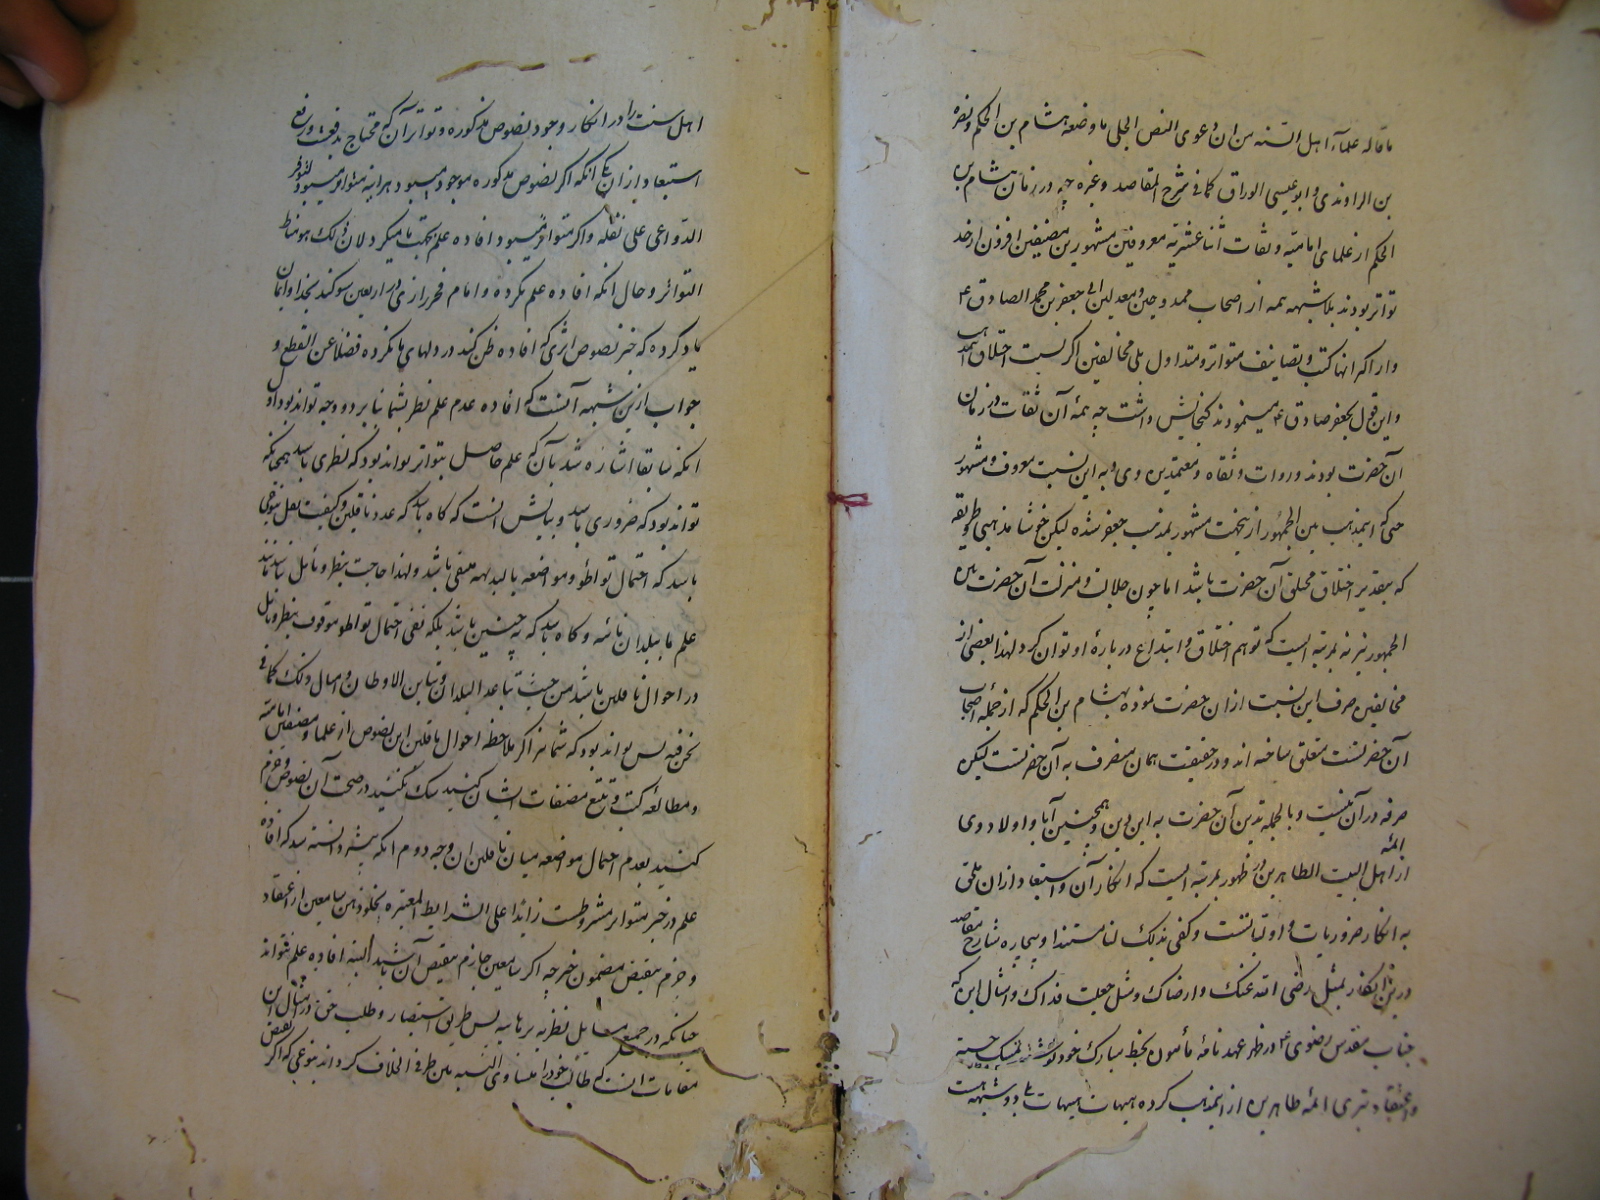 ما قاله علماء اهل السنه من ان دعوی النص الجلی ما وضعه هشام بن الحکم و نصره
بن الراوندی و ابو عیسی الوراق کما فی شرح المقاصد و غیره چه در زمان هشام بن
الحکم از علمای امامیه و ثقات اثنا عشریه معروفین مشهورین مصنفین افزون از حد
تواتر بودند بلا شبهه همه از اصحاب ممدوحین و معدلین ابی جعفر بن محمد الصادق ع
و از اکثر انها کتب و تصانیف متواتر و متداول پس مخالفین اکر نسبت اختلاق اینمذهب
و این قول بجعفر صادق ع مینمودند کنجایش داشت چه همه آن ثقات در زمان
آن حضرت بودند و روات و ثقاه و معتمدین وی و به این نسبت معروف و مشهور
حتی که اینمذهب بین الجمهور ازینجهت مشهور بمذهب جعفر شده لیکن خوشا مذهبی و طریقه
که بتقدیر اختلاق مختلق آن حضرت باشد اما چون جلالت و منزلت آن حضرت بین
الجمهور نیز نه بمرتبه ایست که توهم اختلاق و ابتداع درباره او توان کرد لهذا بعضی از
مخالفین صرف این نسبت از ان حضرت نموده بهشام بن الحکم که از جمله اصحاب
آن حضرتست متعلق ساخته اند و در حقیقت همان منصرف به آن حضرتست لیکن
صرفه در آن نیست و بالجمله تدین آن حضرت به این دین و همچنین آبا و اولاد وی
ائمه
از اهل البیت الطاهرین در ظهور بمرتبه ایست که انکار آن و استبعاد از ان ملحق
به انکار ضروریات و اولیاتست و کفی بذلک لنا مستندا و بیچاره شارح مقاصد
درین انکار بمثل رضی الله عنک و ارضاک و مثل جعلت فداک و امثال این که
جناب مقدس رضوی ع در ظهر عهد نامه مأمون بخط مبارک خود نوشته تمسک جسته
و اعتقاد تبری ائمه طاهرین از اینمذهب کرده هیهات هیهات بلی دو شبهه هست
اهل سنت را در انکار وجود نصوص مذکوره و تواتر آن که محتاج بدفعت و رفع
استبعاد از ان یکی آنکه اکر نصوص مذکوره موجود میبود هر اینه متواتر میبود لتوفر
الدواعی علی نقله و اکر متواتر میبود افاده علم بصحت ما میکرد لان ذلک هو مناط
التواتر و حال انکه افاده علم نکرده و امام فخر رازی در اربعین سوکند بخدا و ایمان
یاد کرده که خبر نصوص اثری که افاده ظن کند در دلهای ما نکرده فضلا عن القطع و
جواب ازین شبهه آنست که افاده عدم علم نظر بشما بنا بر دو وجه تواند بود اول
انکه سابقا اشاره شد بآن که علم حاصل بتواتر تواند بود که نظری باشد همچنانکه
تواند بود که ضروری باشد و بیانش انست که کاه باشد که عدد ناقلین و کیفیت نقل بنوعی
باشد که احتمال تواطؤ و مواضعه بالبدیهه منتفی باشد و لهذا حاجت بنظر و تامل نباشد مانند
علم ما ببلدان نائیه و کاه باشد که نه چنین باشد بلکه نفی احتمال تواطؤ موقوف بنظر و تامل
در احوال ناقلین باشد من حیث تباعد البلدان و تباین الاوطان و امثال ذلک کما فی
نحن فیه پس تواند بود که شما نیز اکر ملاحظه احوال ناقلین این نصوص از علما و مصنفین امامیه
و مطالعه کتب و تتبع مصنفات ایشان کنید شک نکنید در صحت آن نصوص و جزم
کنید بعدم احتمال مواضعه میان ناقلین ان وجه دوم انکه پیشتر دانسته شد که افاده
علم در خبر متواتر مشروطست زائدا علی الشرایط المعتبره بخلو ذهن سامعین از اعتقاد
و جزم بنقیض مضمون خبر چه اکر سامعین جازم بنقیض آن باشند البته افاده علم نتواند
چنانکه در جمیع مسایل نظریه برهانیه پس طریق استبصار و طلب حق در امثال این
مقامات انست که طالب خود را متساوی النسبه بین طرفی الخلاف کرداند بنوعی که اکر نقیض